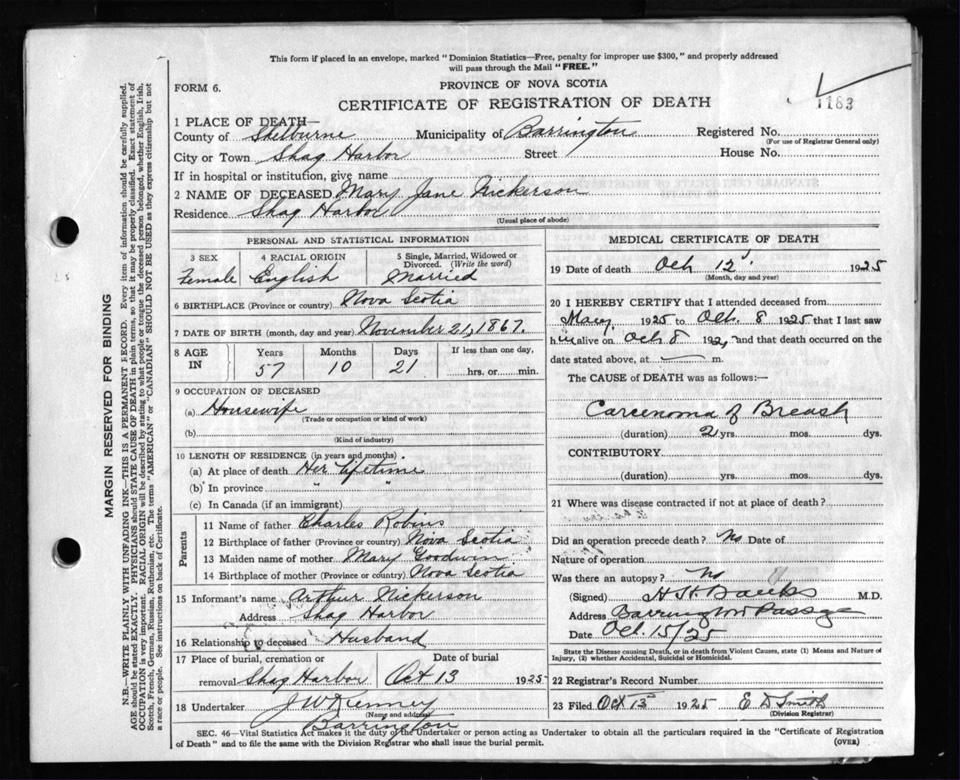 This form if placed in an envelope, marked "Dominion Statistics—Free, penalty for improper use $300," and properly addressed
will pass through the Mail "FREE."
FORM 6.
PROVINCE OF NOVA SCOTIA
CERTIFICATE OF REGISTRATION OF DEATH
1183
1 PLACE OF DEATH
County of Shelburne Municipality of Barrington Registered No.
(For use of Registrar General only)
City or Town Shag Harbor Street House No.
If in hospital or institution, give name
2 NAME OF DECEASED Mary Jane Nickerson
Residence Shag Harbor
(Usual place of abode)
PERSONAL AND STATISTICAL INFORMATION
3 SEX 4 RACIAL ORIGIN 5 Single, Married, Widowed or Divorced. (Write the word)
Female English Married
6 BIRTHPLACE (Province or country) Nova Scotia
7 DATE OF BIRTH (month, day and year) November 21, 1867.
8 AGE IN Years Months Days If less than one day,
57 10 21 hrs. or min.
9 OCCUPATION OF DECEASED
(a) Housewife
(Trade or occupation or kind of work)
(b)
(Kind of industry)
10 LENGTH OF RESIDENCE (in years and months).
(a) At place of death Her lifetime
(b) In province " "
(c) In Canada (if an immigrant)
Parents
11 Name of father Charles Robins
12 Birthplace of father (Province or country) Nova Scotia
13 Maiden name of mother Mary Goodwin
14 Birthplace of mother (Province or country) Nova Scotia
15 Informant's name Arthur Nickerson
Address Shag Harbor
16 Relationship to deceased Husband
17 Place of burial, cremation or Date of burial
removal Shag Harbor Oct 13 1925
18 Undertaker J W Kenney
(Name and address)
Barrington
MEDICAL CERTIFICATE OF DEATH
19 Date of death Oct 12 1925
(Month, day and year)
20 I HEREBY CERTIFY that I attended deceased from
1925 to Oct. 8 1925 that I last saw
h alive on Oct 8 192 and that death occurred on the
date stated above, at — m.
The CAUSE of DEATH was as follows:—
Carcenoma of Breast
(duration) 2 yrs. mos. dys.
CONTRIBUTORY
(duration) yrs. mos. dys.
21 Where was disease contracted if not at place of death?
Did an operation precede death? No Date of
Nature of operation
Was there an autopsy? No
(Signed) Banks M.D.
Address Barrington Passage
Date Oct. 15/25
State the Disease causing Death, or in death from Violent Causes, state (1) Means and Nature of
Injury, (2) whether Accidental, Suicidal or Homicidal.
22 Registrar's Record Number
23 Filed Oct 15 1925 E D Smith
(Division Registrar)
SEC. 46—Vital Statistics Act makes it the duty of the Undertaker or person acting as Undertaker to obtain all the particulars required in the "Certificate of Registration
of Death" and to file the same with the Division Registrar who shall issue the burial permit.
(OVER)
MARGIN RESERVED FOR BINDING
N.B.—WRITE PLAINLY WITH UNFADING INK—THIS IS A PERMANENT RECORD. Every item of information should be carefully supplied.
AGE should be stated EXACTLY. PHYSICIANS should STATE CAUSE OF DEATH in plain terms, so that it may be properly classified. Exact statement of
OCCUPATION is very important. RACIAL ORIGIN will be described by stating to what people or tongue the deceased person belonged, whether English, Irish,
Scotch, French, German, Russian, Ruthenian, etc. The terms "AMERICAN" or "CANADIAN" SHOULD NOT BE USED as they express citizenship but not
a race or people. See instructions on back of Certificate.